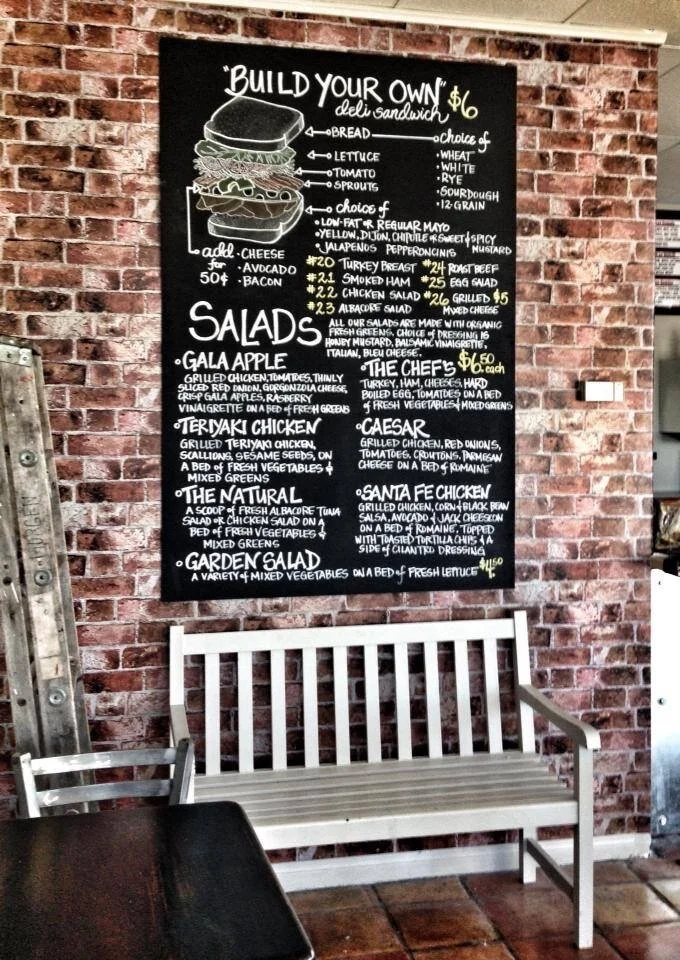 "BUILD YOUR OWN" $6
deli sandwich
BREAD choice of
LETTUCE • WHEAT
TOMATO • WHITE
SPROUTS • RYE
• SOURDOUGH
• 12-GRAIN
choice of
• LOW-FAT OR REGULAR MAYO
• YELLOW, DIJON, CHIPOTLE OR SWEET & SPICY MUSTARD
• JALAPENOS PEPPERONCINIS
add for 50¢ • CHEESE
• AVOCADO
• BACON
#20 TURKEY BREAST #24 ROAST BEEF
#21 SMOKED HAM #25 EGG SALAD
#22 CHICKEN SALAD #26 GRILLED $5
#23 ALBACORE SALAD MIXED CHEESE
SALADS
ALL OUR SALADS ARE MADE WITH ORGANIC
FRESH GREENS. CHOICE OF DRESSING IS
HONEY MUSTARD, BALSAMIC VINAIGRETTE,
ITALIAN, BLEU CHEESE.
$6.50 each
• GALA APPLE
GRILLED CHICKEN, TOMATOES, THINLY
SLICED RED ONION, GORGONZOLA CHEESE,
CRISP GALA APPLES, RASBERRY
VINAIGRETTE ON A BED of FRESH GREENS
• THE CHEF'S
TURKEY, HAM, CHEESES, HARD
BOILED EGG, TOMATOES ON A BED
of FRESH VEGETABLES & MIXED GREENS
• TERIYAKI CHICKEN
GRILLED TERIYAKI CHICKEN,
SCALLIONS, SESAME SEEDS, ON
A BED of FRESH VEGETABLES &
MIXED GREENS
• CAESAR
GRILLED CHICKEN, RED ONIONS,
TOMATOES, CROUTONS, PARMESAN
CHEESE ON A BED of ROMAINE
• THE NATURAL
A SCOOP of FRESH ALBACORE TUNA
SALAD OR CHICKEN SALAD ON A
BED of FRESH VEGETABLES &
MIXED GREENS
• SANTA FE CHICKEN
GRILLED CHICKEN, CORN & BLACK BEAN
SALSA, AVOCADO & JACK CHEESE ON
ON A BED of ROMAINE, TOPPED
WITH TOASTED TORTILLA CHIPS & A
SIDE of CILANTRO DRESSING
• GARDEN SALAD
A VARIETY of MIXED VEGETABLES ON A BED of FRESH LETTUCE $4.50